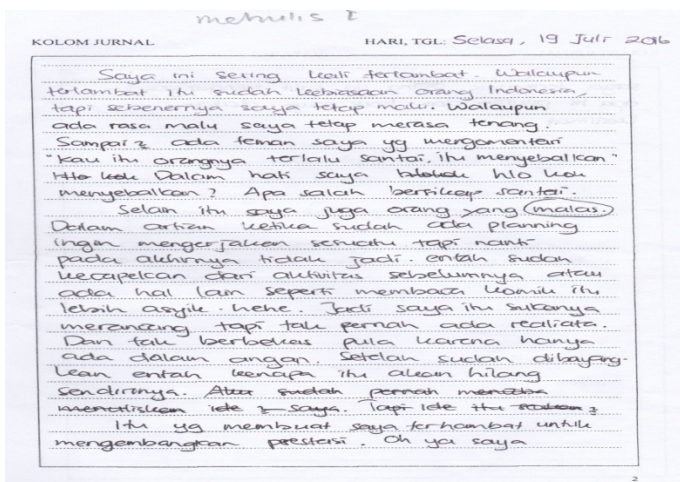 menulis I
KOLOM JURNAL HARI, TGL: Selasa, 19 Juli 2016
Saya ini sering kali terlambat. Walaupun
terlambat itu sudah kebiasaan orang Indonesia,
tapi sebenernya saya tetap malu. Walaupun
ada rasa malu saya tetap merasa tenang.
Sampai2 ada teman saya yg mengomentari
"Kau itu orangnya terlalu santai, itu menyebalkan"
Dalam hati saya hlo kok
menyebalkan? Apa salah bersikap santai.
Selain itu saya juga orang yang malas.
Dalam artian ketika sudah ada planning
ingin mengerjakan sesuatu tapi nanti
pada akhirnya tidak jadi. entah sudah
kecapekan dari aktivitas sebelumnya atau
ada hal lain seperti membaca komik itu
lebih asyik. hehe. Jadi saya itu sukanya
merancang tapi tak pernah ada realiata.
Dan tak berbekas pula karena hanya
ada dalam angan. Setelah sudah dibayang-
kan entah kenapa itu akan hilang
sendirinya. Atau sudah pernah mencoba
menuliskan ide2 saya. Tapi ide itu
Itu yg membuat saya terhambat untuk
mengembangkan prestasi. Oh ya saya
2